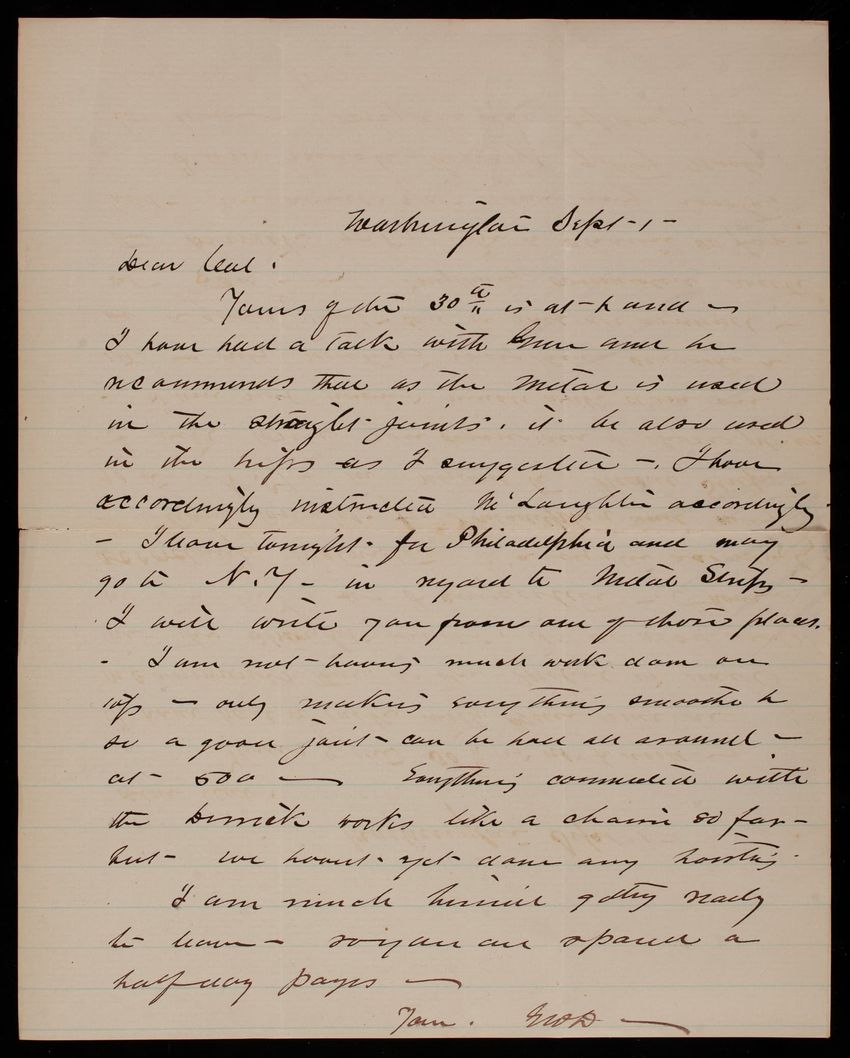 Washington Sept-1-
Dear Col.
Yours of the 30th is at-hand -
I have had a talk with Green and he
recommends that as the metal is used
in the straight-joints. it be also used
in the hips as I suggested -. I have
accordingly instructed McLaughlin accordingly.
- I leave tonight-for Philadelphia and may
go to N.Y- in regard to Metal Strips -
I will write you from one of those places.
- I am not-having much work done on
top - only making everything smooth
so a good joint-can be had all around -
at-500 - Everything connected with
the Derrick works like a charm so far-
but-we havent-yet-done any hoisting.
I am much hurried getting ready
to leave - so you are spared a
half day pages -
Yours.